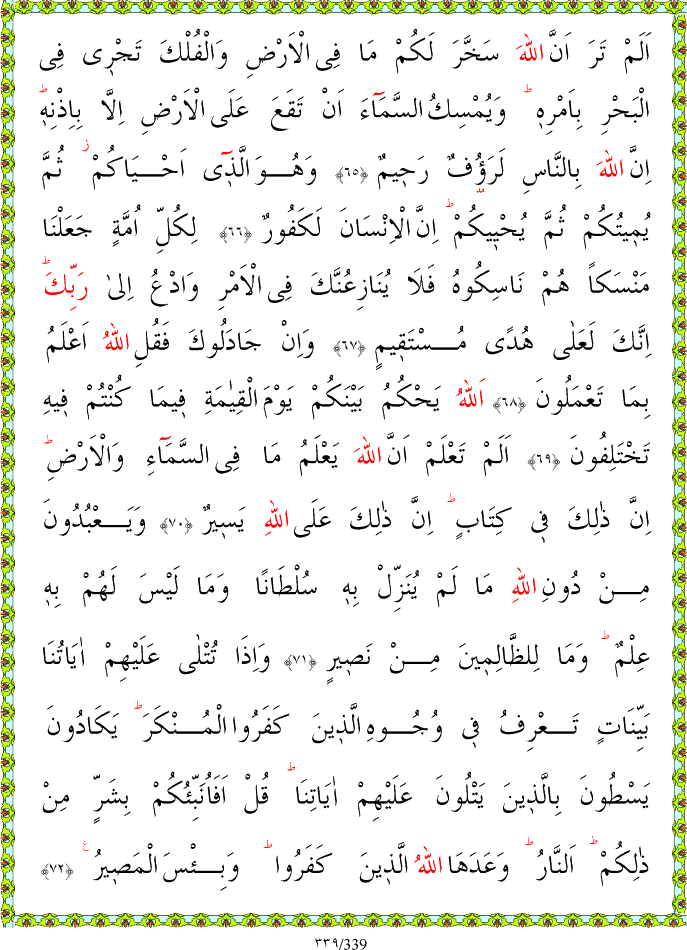 اَلَمْ تَرَ اَنَّ اللّٰهَ سَخَّرَ لَكُمْ مَا فِى الْاَرْضِ وَالْفُلْكَ تَجْرٖى فِى
الْبَحْرِ بِاَمْرِهٖۜ وَيُمْسِكُ السَّمَٓاءَ اَنْ تَقَعَ عَلَى الْاَرْضِ اِلَّا بِاِذْنِهٖۜ
اِنَّ اللّٰهَ بِالنَّاسِ لَرَؤُفٌ رَحٖيمٌ ﴿٦٥﴾ وَهُوَ الَّذٖٓى اَحْيَاكُمْۘ ثُمَّ
يُمٖيتُكُمْ ثُمَّ يُحْيٖيكُمْۜ اِنَّ الْاِنْسَانَ لَكَفُورٌ ﴿٦٦﴾ لِكُلِّ اُمَّةٍ جَعَلْنَا
مَنْسَكاً هُمْ نَاسِكُوهُ فَلَا يُنَازِعُنَّكَ فِى الْاَمْرِ وَادْعُ اِلٰى رَبِّكَۜ
اِنَّكَ لَعَلٰى هُدًى مُسْتَقٖيمٍ ﴿٦٧﴾ وَاِنْ جَادَلُوكَ فَقُلِ اللّٰهُ اَعْلَمُ
بِمَا تَعْمَلُونَ ﴿٦٨﴾ اَللّٰهُ يَحْكُمُ بَيْنَكُمْ يَوْمَ الْقِيٰمَةِ فٖيمَا كُنْتُمْ فٖيهِ
تَخْتَلِفُونَ ﴿٦٩﴾ اَلَمْ تَعْلَمْ اَنَّ اللّٰهَ يَعْلَمُ مَا فِى السَّمَٓاءِ وَالْاَرْضِۜ
اِنَّ ذٰلِكَ فٖى كِتَابٍۜ اِنَّ ذٰلِكَ عَلَى اللّٰهِ يَسٖيرٌ ﴿٧٠﴾ وَيَعْبُدُونَ
مِنْ دُونِ اللّٰهِ مَا لَمْ يُنَزِّلْ بِهٖ سُلْطَانًا وَمَا لَيْسَ لَهُمْ بِهٖ
عِلْمٌۜ وَمَا لِلظَّالِمٖينَ مِنْ نَصٖيرٍ ﴿٧١﴾ وَاِذَا تُتْلٰى عَلَيْهِمْ اٰيَاتُنَا
بَيِّنَاتٍ تَعْرِفُ فٖى وُجُوهِ الَّذٖينَ كَفَرُوا الْمُنْكَرَۜ يَكَادُونَ
يَسْطُونَ بِالَّذٖينَ يَتْلُونَ عَلَيْهِمْ اٰيَاتِنَاۜ قُلْ اَفَاُنَبِّئُكُمْ بِشَرٍّ مِنْ
ذٰلِكُمْۜ اَلنَّارُۜ وَعَدَهَا اللّٰهُ الَّذٖينَ كَفَرُواۜ وَبِئْسَ الْمَصٖيرُ ع ﴿٧٢﴾
٣٣٩/339